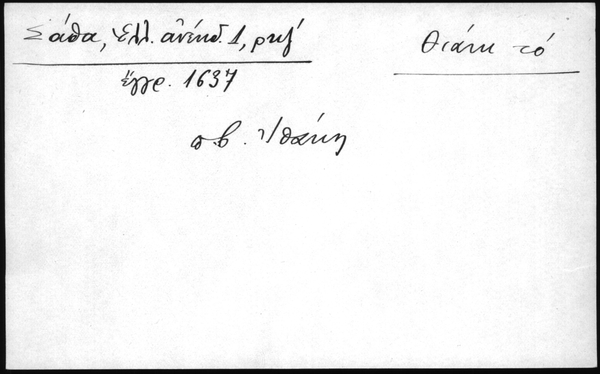 Σάθα, Ἑλλ. ἀνέκδ. 1, ρκζ´
θιάκι τό
ἔγγρ. 1637
πβ. Ἰθάκη